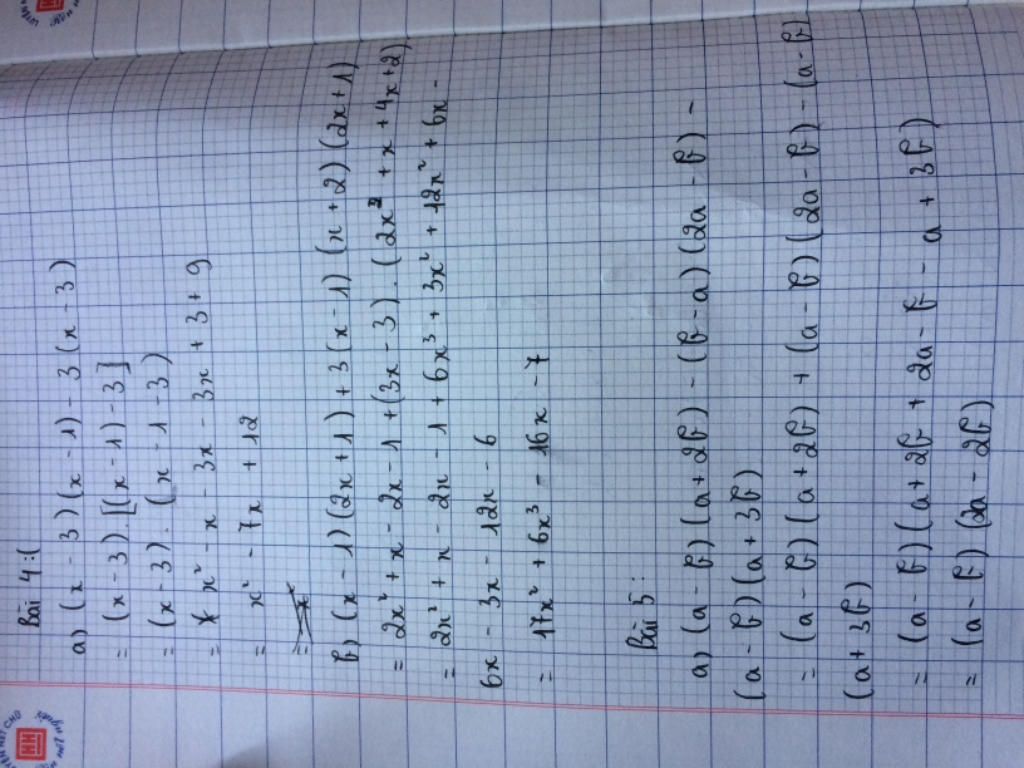 Bài 4:(
a) (x - 3)(x - 1) - 3(x - 3)
= (x - 3).[(x - 1) - 3]
= (x - 3).(x - 1 - 3)
= x² - x - 3x - 3x + 3 + 9
= x² - 7x + 12
b) (x - 1)(2x + 1) + 3(x - 1)(x + 2)(2x + 1)
= 2x² + x - 2x - 1 + (3x - 3).(2x² + x + 4x + 2)
= 2x² + x - 2x - 1 + 6x³ + 3x² + 12x² + 6x -
6x - 3x - 12x - 6
= 17x² + 6x³ - 16x - 7
Bài 5:
a) (a - b)(a + 2b) - (b - a)(2a - b) -
(a - b)(a + 3b)
= (a - b)(a + 2b) + (a - b)(2a - b) - (a - b)
(a + 3b)
= (a - b)(a + 2b + 2a - b - a + 3b)
= (a - b)(2a - 2b)